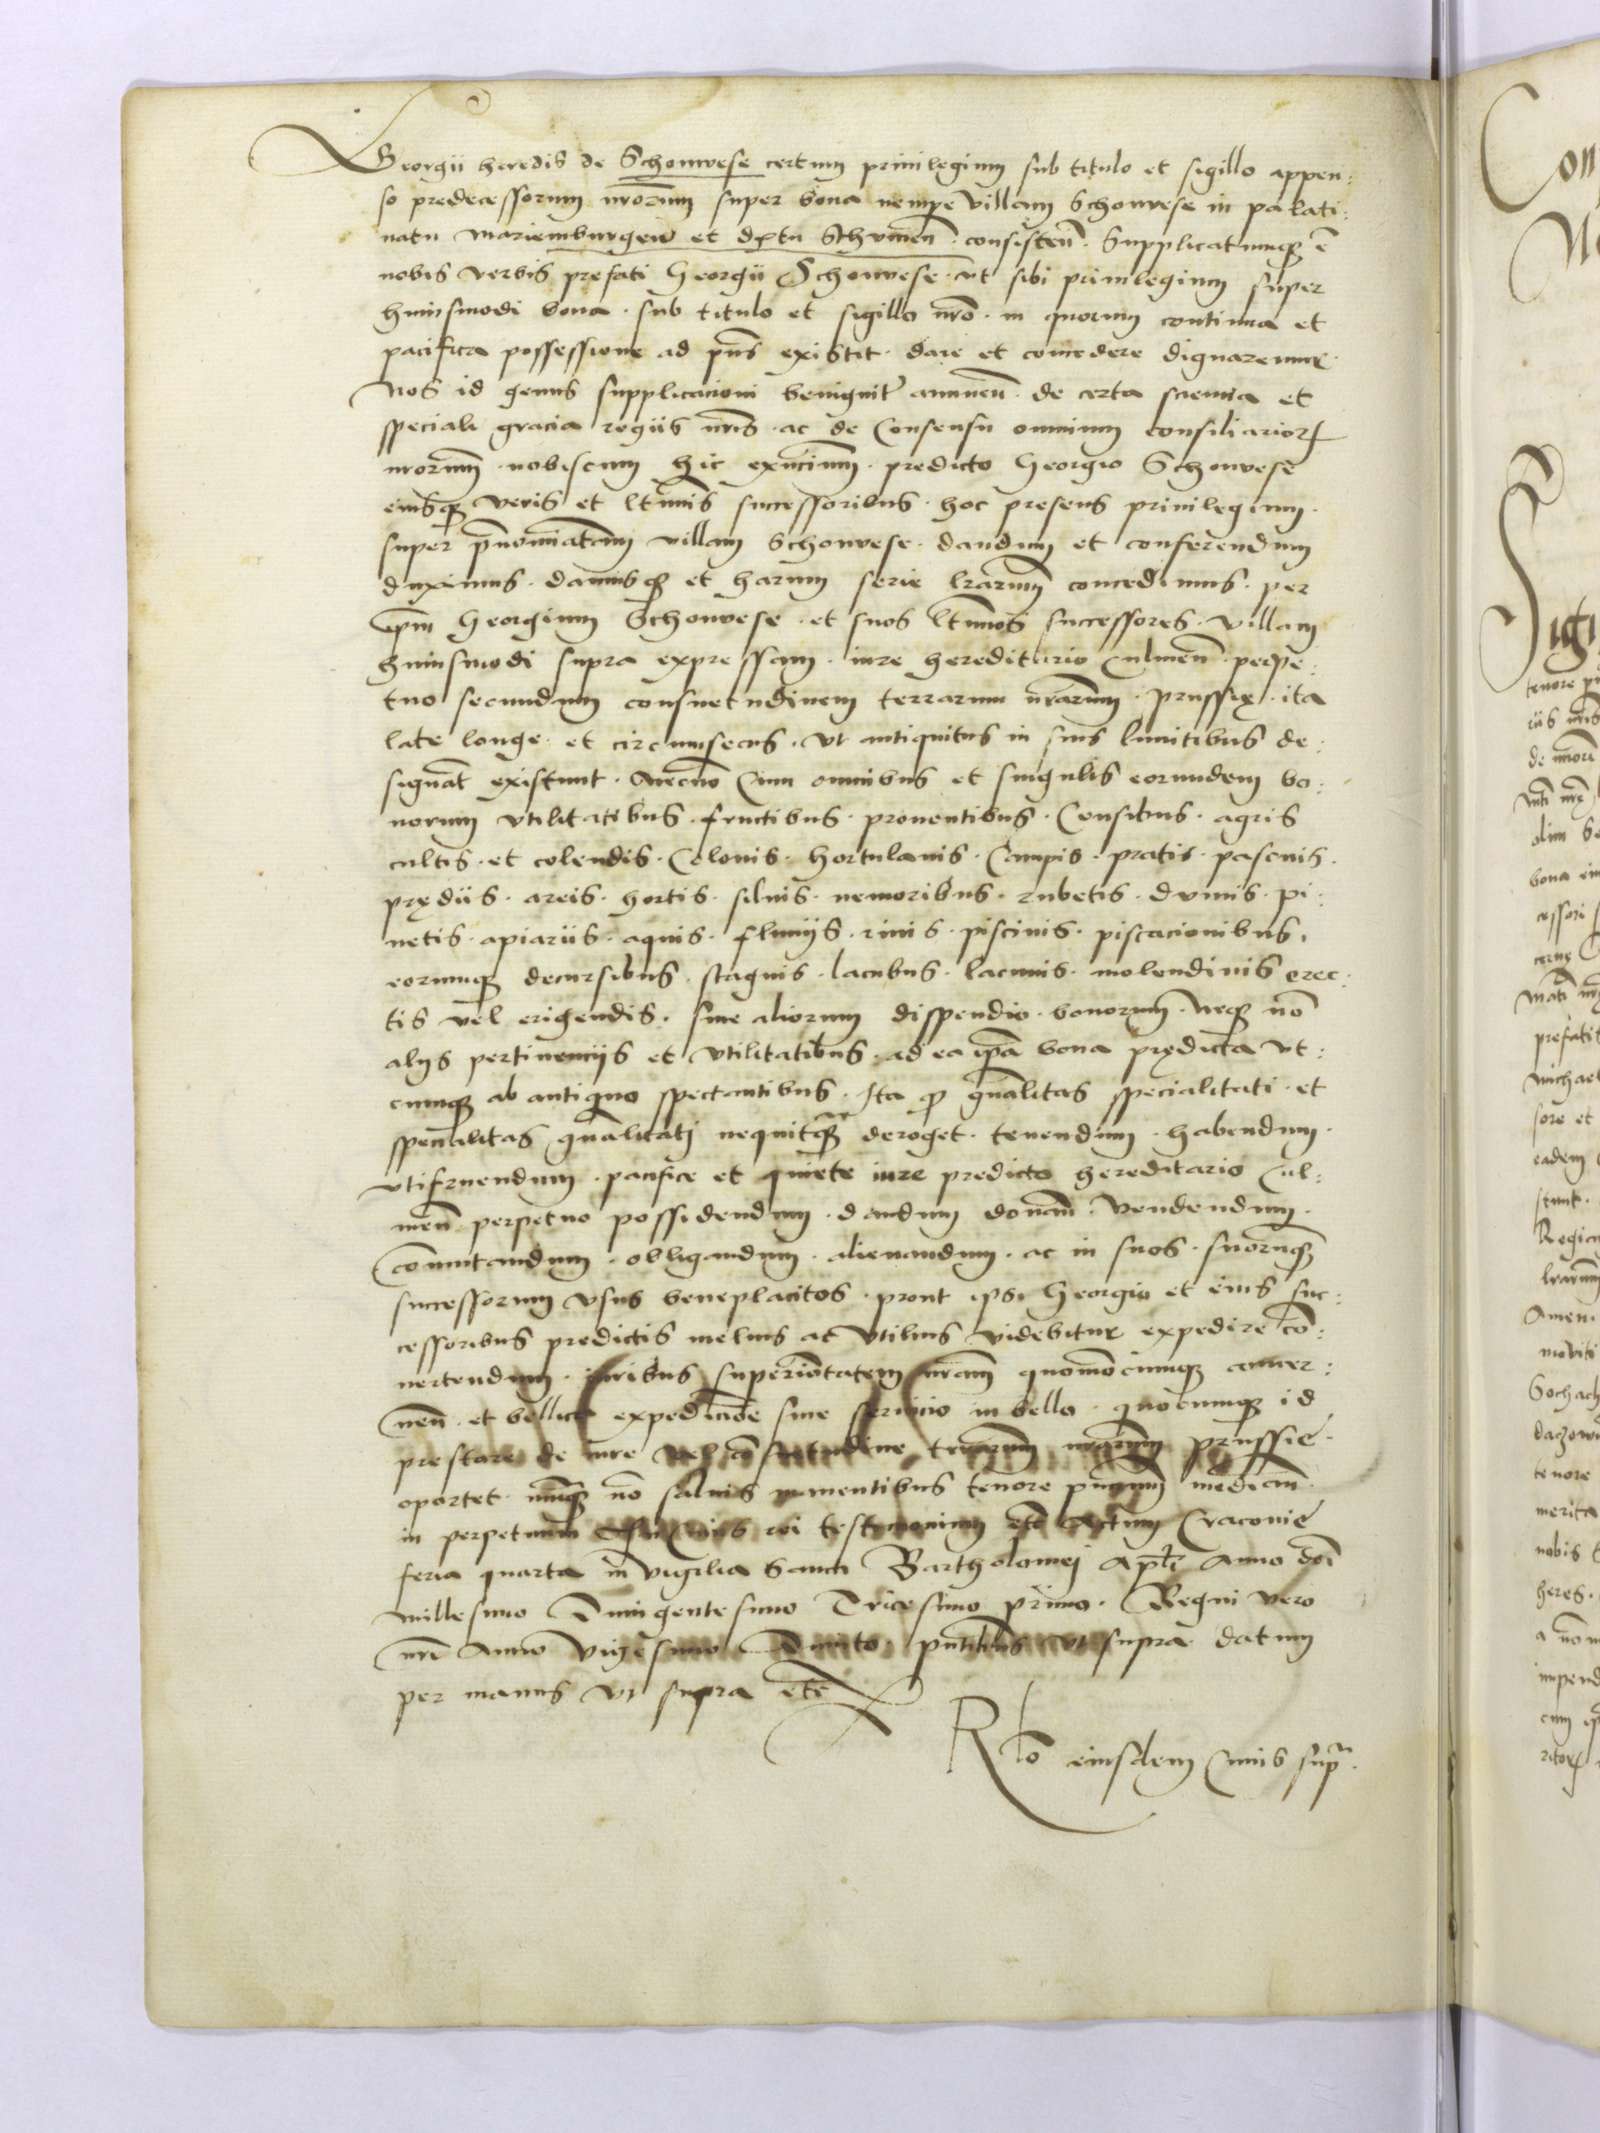 Georgii heredis de Schonwese certum priuilegium sub titulo et sigillo appen:
so predecessorum nrorum super bona nempe villam Schonwese in palati:
natu Mariemburgen et dxtu Sthumen consisten. Supplicatumq3 ē
nobis verbis prefati Georgii Schonwese vt sibi priuilegium super
huiusmodi bona sub titulo et sigillo nro in quorum continua et
pacifica possessione ad pns existit dare et concedere dignaremur
Nos id genus supplicacioni benignitr annuen de certa sciencia et
speciali gracia regiis nris ac de Consensu omnium consiliarior
nrorum nobiscum hic exntium predicto Georgio Schonwese
eiusq3 veris et ltimis successoribus hoc presens priuilegium
super prnominatam villam Schonwese dandum et conferendum
duximus damusq3 et harum serie lrarum concedimus per
ipm Georgium Schonwese et suos ltimos successores villam
huiusmodi supra expressam iure hereditario Culmen perpe:
tuo secundum consuetudinem terrarum nrarum prussię ita
late longe et circumsecus vt antiquitus in suis limitibus de:
signat existunt Necno Cum omnibus et singulis eorundem bo:
norum vtilitatibus fructibus prouentibus Censibus agris
cultis et colendis Colonis hortulanis Campis pratis pascuis
prędiis areis hortis siluis nemoribus rubetis dumis pi:
netis apiariis aquis fluuijs riuis piscinis piscacionibus
eorumq3 decursibus stagnis lacubus lacunis molendinis erec:
tis vel erigendis sine aliorum dispendio bonorum neq3 no
alijs pertinencijs et vtilitatibus ad ea ipa bona prędicta vt:
cumq3 ab antiquo spectantibus Ita q gnalitas specialitati et
specialitas gnalitati nequitq deroget tenendum habendum
vtifruendum pacifice et quiete iure predicto hereditario Cul:
men perpetuo possidendum dandum donam vendendum
Commutandum obligandum alienandum ac in suos suorumq3
successorum vsus beneplacitos prout ipsi Georgio et eius suc:
cessoribus predictis melius ac vtilius videbitur expedire con:
uertendum iuribus superioritatem nram quomocumq3 concer:
nen et bellica expedicione siue seruicio in bello quocumq3 id
prestare de iure vel consuetudine trrarum nrarum prussie
oportet no saluis manentibus tenore pntium mediam
in perpetuum In Cuius rei testimonium etc Actum Cracouie
feria quarta in vigilia Sancti Bartholomej Apli Anno doi
millesimo Quingentesimo Tricesimo primo Regni vero
nri Anno vigesimo Quinto pntibus vt supra datum
per manus vt supra etc
Rlo eiusdem Cuius supr